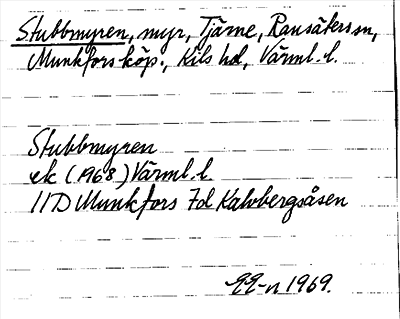 Stubbmyren, myr, Tjärne, Ransäters sn,
Munkfors köp., Kils hd, Värml. l.
Stubbmyren
ek (1968) Värml. l.
11D Munkfors 7d Kalvbergsåsen
1969.